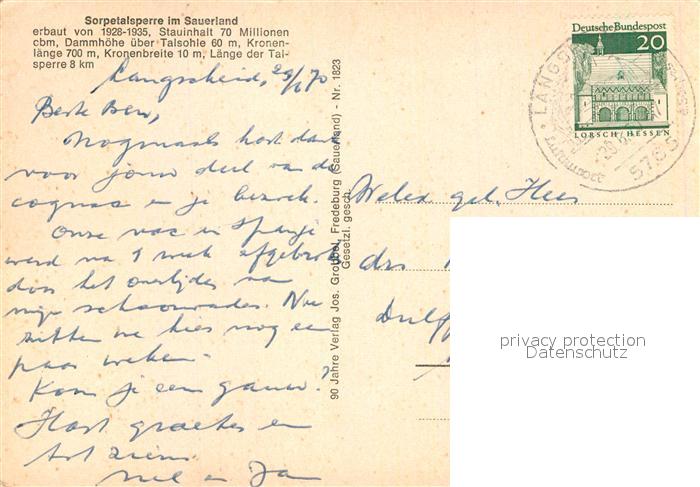 Sorpetalsperre im Sauerland
erbaut von 1928-1935, Stauinhalt 70 Millionen
cbm, Dammhöhe über Talsohle 60 m, Kronen-
länge 700 m, Kronenbreite 10 m, Länge der Tal-
sperre 8 km
Langscheid, 29/6 70
Beste Ben,
Nogmaals hart dank
voor jouw deel van de
cognac en je bezoek.
Onze vac in Spanje
werd na 1 week afgebroken
door het overlijden van
mijn schoonvader. Nu
zitten we hier nog een
paar weken.
Kom je een gauw?
Hart groeten en
tot ziens
Nel en Jan
90 Jahre Verlag Jos. Grobbel, Fredeburg (Sauerland) - Nr. 1823
Gesetzl. gesch.
Deutsche Bundespost
20
LORSCH/HESSEN
5768
Weled. geb. Heer
drs
privacy protection
Datenschutz